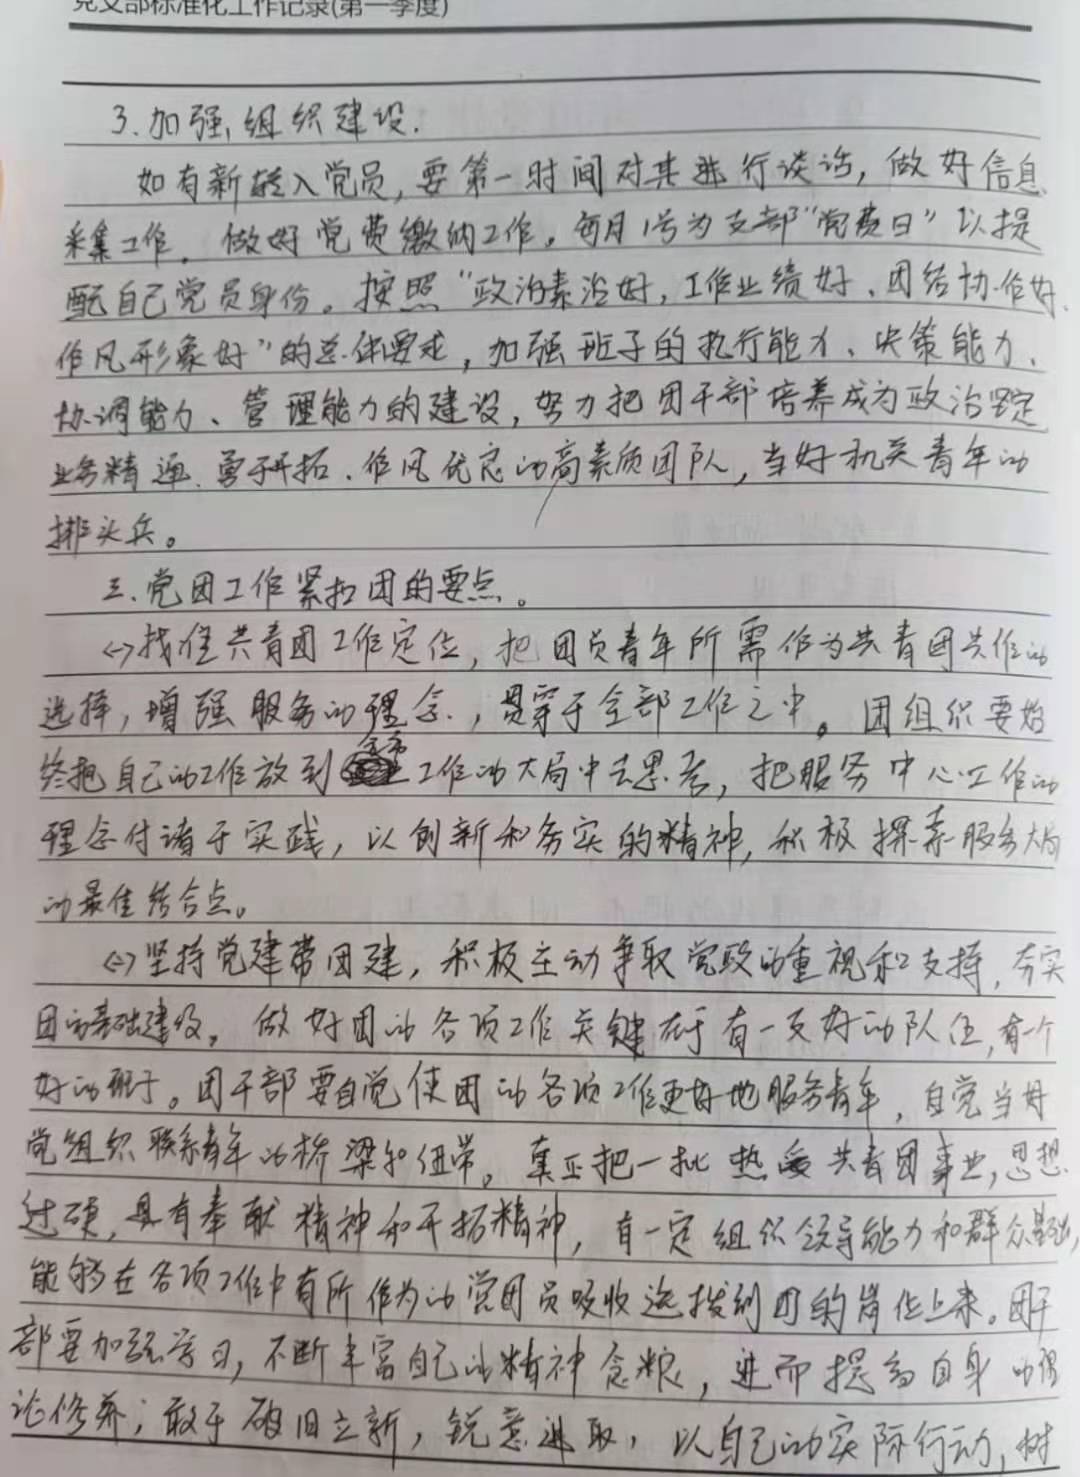 党支部标准化工作记录(第一季度)
3.加强组织建设.
如有新转入党员,要第一时间对其进行谈话,做好信息
采集工作。做好党费缴纳工作。每月1号为支部“党费日”以提
醒自己党员身份。按照“政治素治好,工作业绩好、团结协作好、
作风形象好”的总体要求,加强班子的执行能力、决策能力、
协调能力、管理能力的建设,努力把团干部培养成为政治坚定
业务精通、勇于开拓、作风优良的高素质团队,当好机关青年的
排头兵。
三.党团工作紧扣团的要点。
<一>找准共青团工作定位,把团员青年所需作为共青团工作的
选择,增强服务的理念,贯穿于全部工作之中。团组织要始
终把自己的工作放到全市工作的大局中去思考,把服务中心工作的
理念付诸于实践,以创新和务实的精神,积极探索服务大局
的最佳结合点。
<二>坚持党建带团建,积极主动争取党政的重视和支持,夯实
团的基础建设。做好团的各项工作关键在于有一支好的队伍,有一个
好的班子。团干部要自觉使团的各项工作更好地服务青年,自觉当好
党组织联系青年的桥梁和纽带。真正把一批热爱共青团事业,思想
过硬,具有奉献精神和开拓精神,有一定组织领导能力和群众基础,
能够在各项工作中有所作为的党团员吸收选拔到团的岗位上来。团干
部要加强学习,不断丰富自己的精神食粮,进而提高自身的理
论修养;敢于破旧立新,锐意进取,以自己的实际行动,树